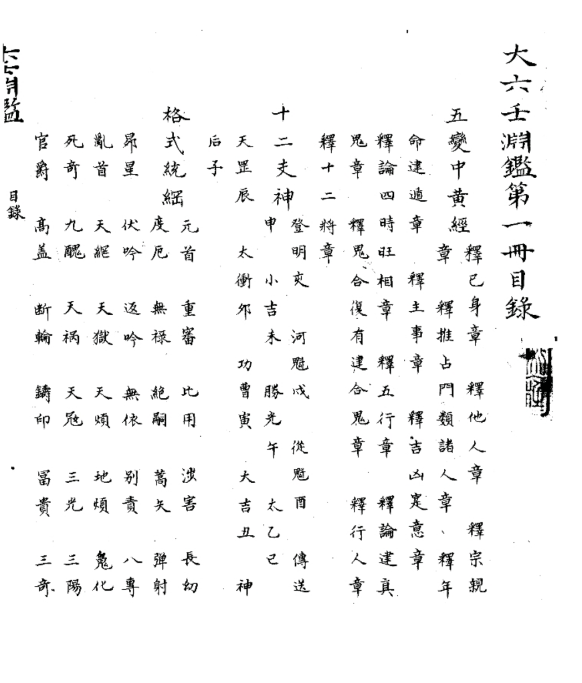 大六壬淵鑑第一冊目錄
五變中黃經
釋己身章 釋他人章 釋宗親
章 釋推占門類諸人章、釋年
命建遁章 釋主事章 釋吉凶寔意章
釋論四時旺相章 釋五行章 釋論建真
鬼章 釋鬼合復有建合鬼章 釋行人章
釋十二將章
十二支神
登明亥 河魁戌 從魁酉 傳送
申 小吉未 勝光午 太乙巳
天罡辰 太衝夘 功曹寅 大吉丑 神
后子
格式統綱
元首 重審 比用 涉害 長幼
度厄 無禄 絶嗣 蒿矢 弹射
昴星 伏吟 返吟 無依 别責 八專
亂首 天網 天獄 天煩 地煩 鬼化
死奇 九醜 天禍 天冦 三光 三陽
官爵 高盖 斷輪 鑄印 冨貴 三奇
目錄